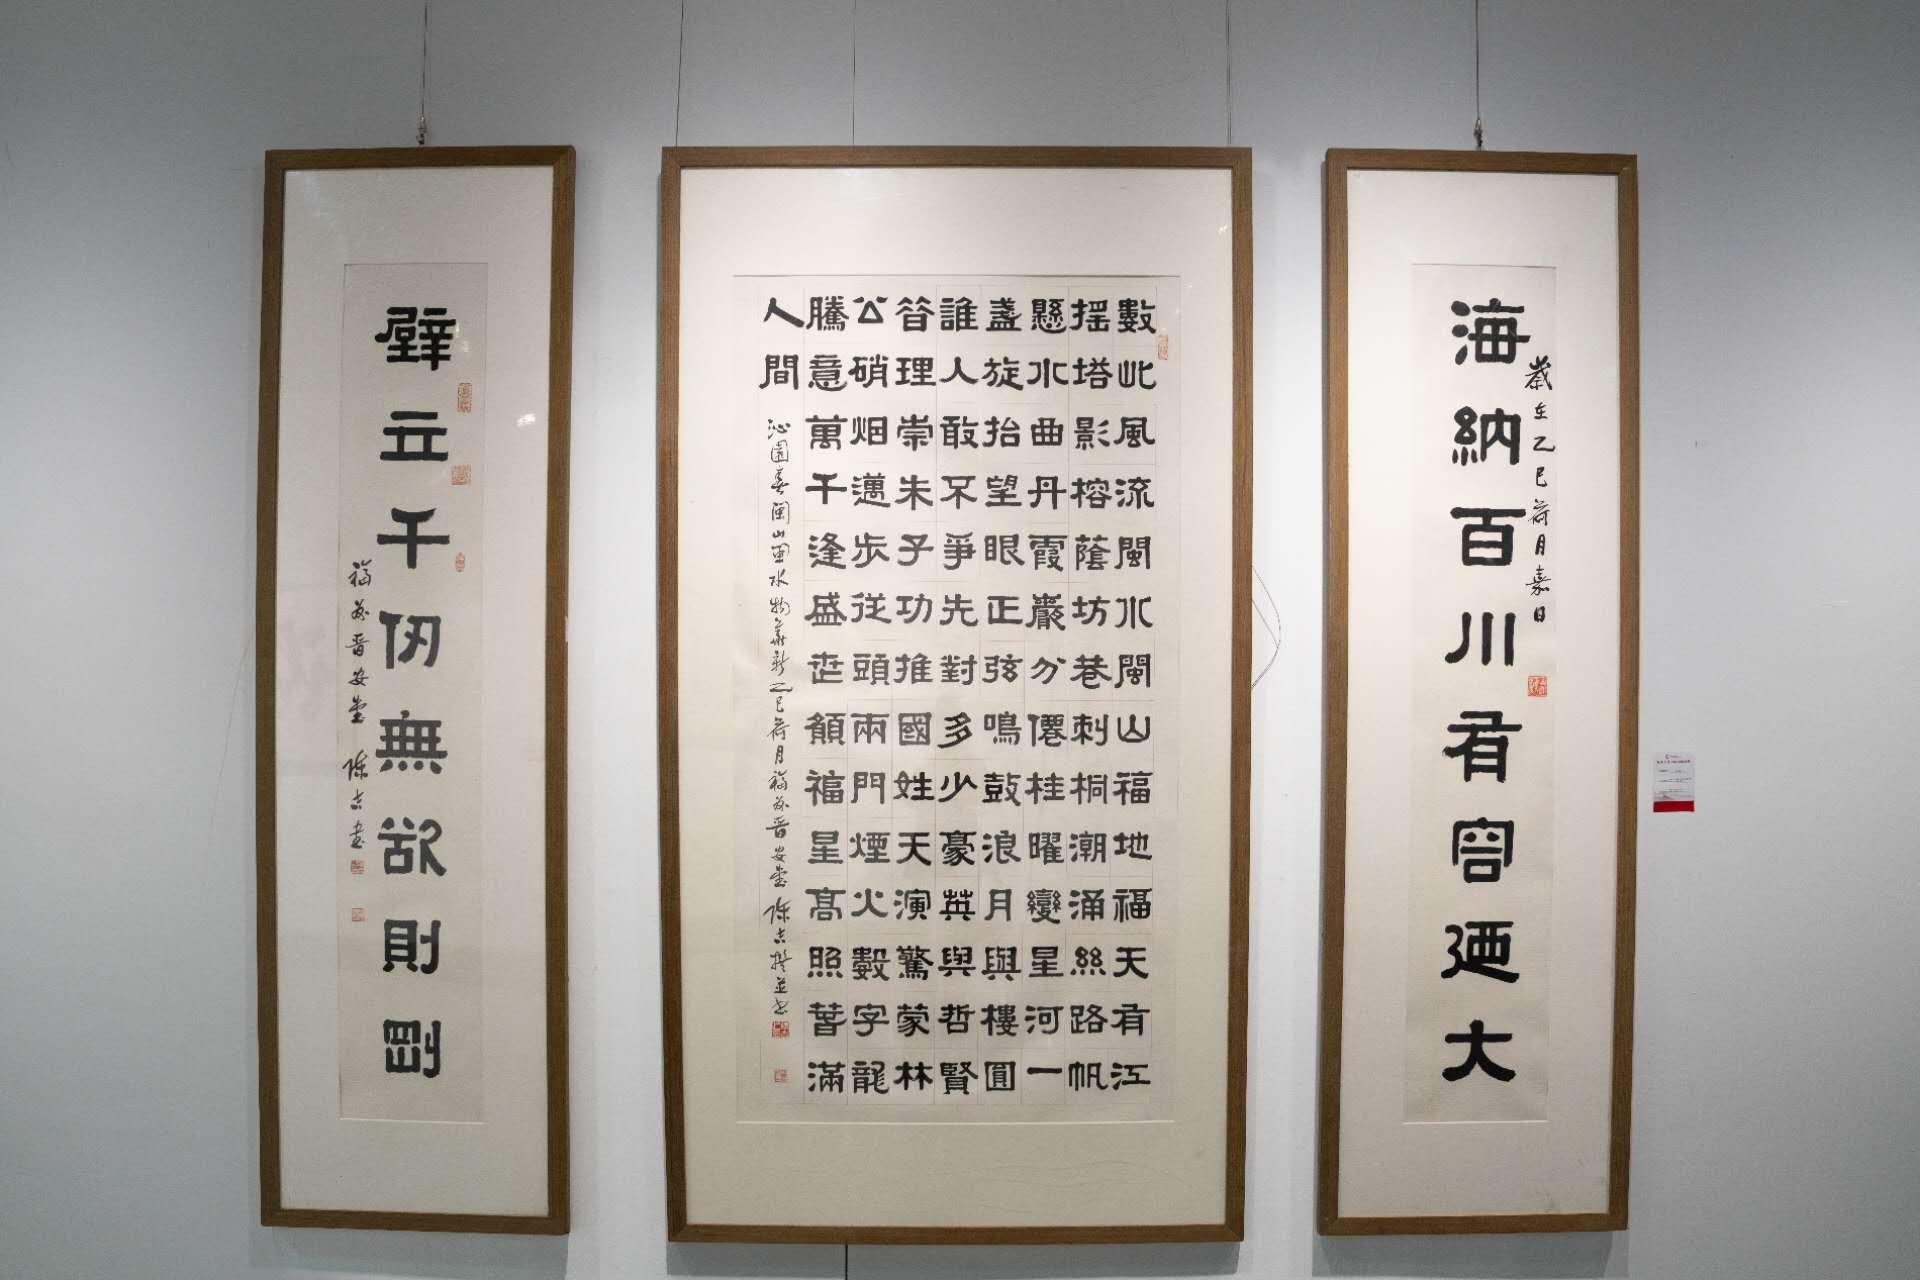 海納百川有容廼大
歲在乙巳荷月嘉日
數此風流閩水閩山福地福天有江
搖塔影榕蔭坊巷刺桐潮涌絲路帆
懸水曲丹霞巖分僊桂曜變星河一
盞旋抬望眼正弦鳴鼓浪月與樓圓
誰人敢不爭先對多少豪英與哲賢
昔理崇朱子功推國姓天演驚蒙林
公硝烟邁步從頭兩門煙火數字龍
騰意萬千逢盛世願福星高照譽滿
人間
沁園春閩山閩水物華新乙巳荷月福晉安堂陳吉撰並書
壁立千仞無欲則剛
福晉安堂陳吉書